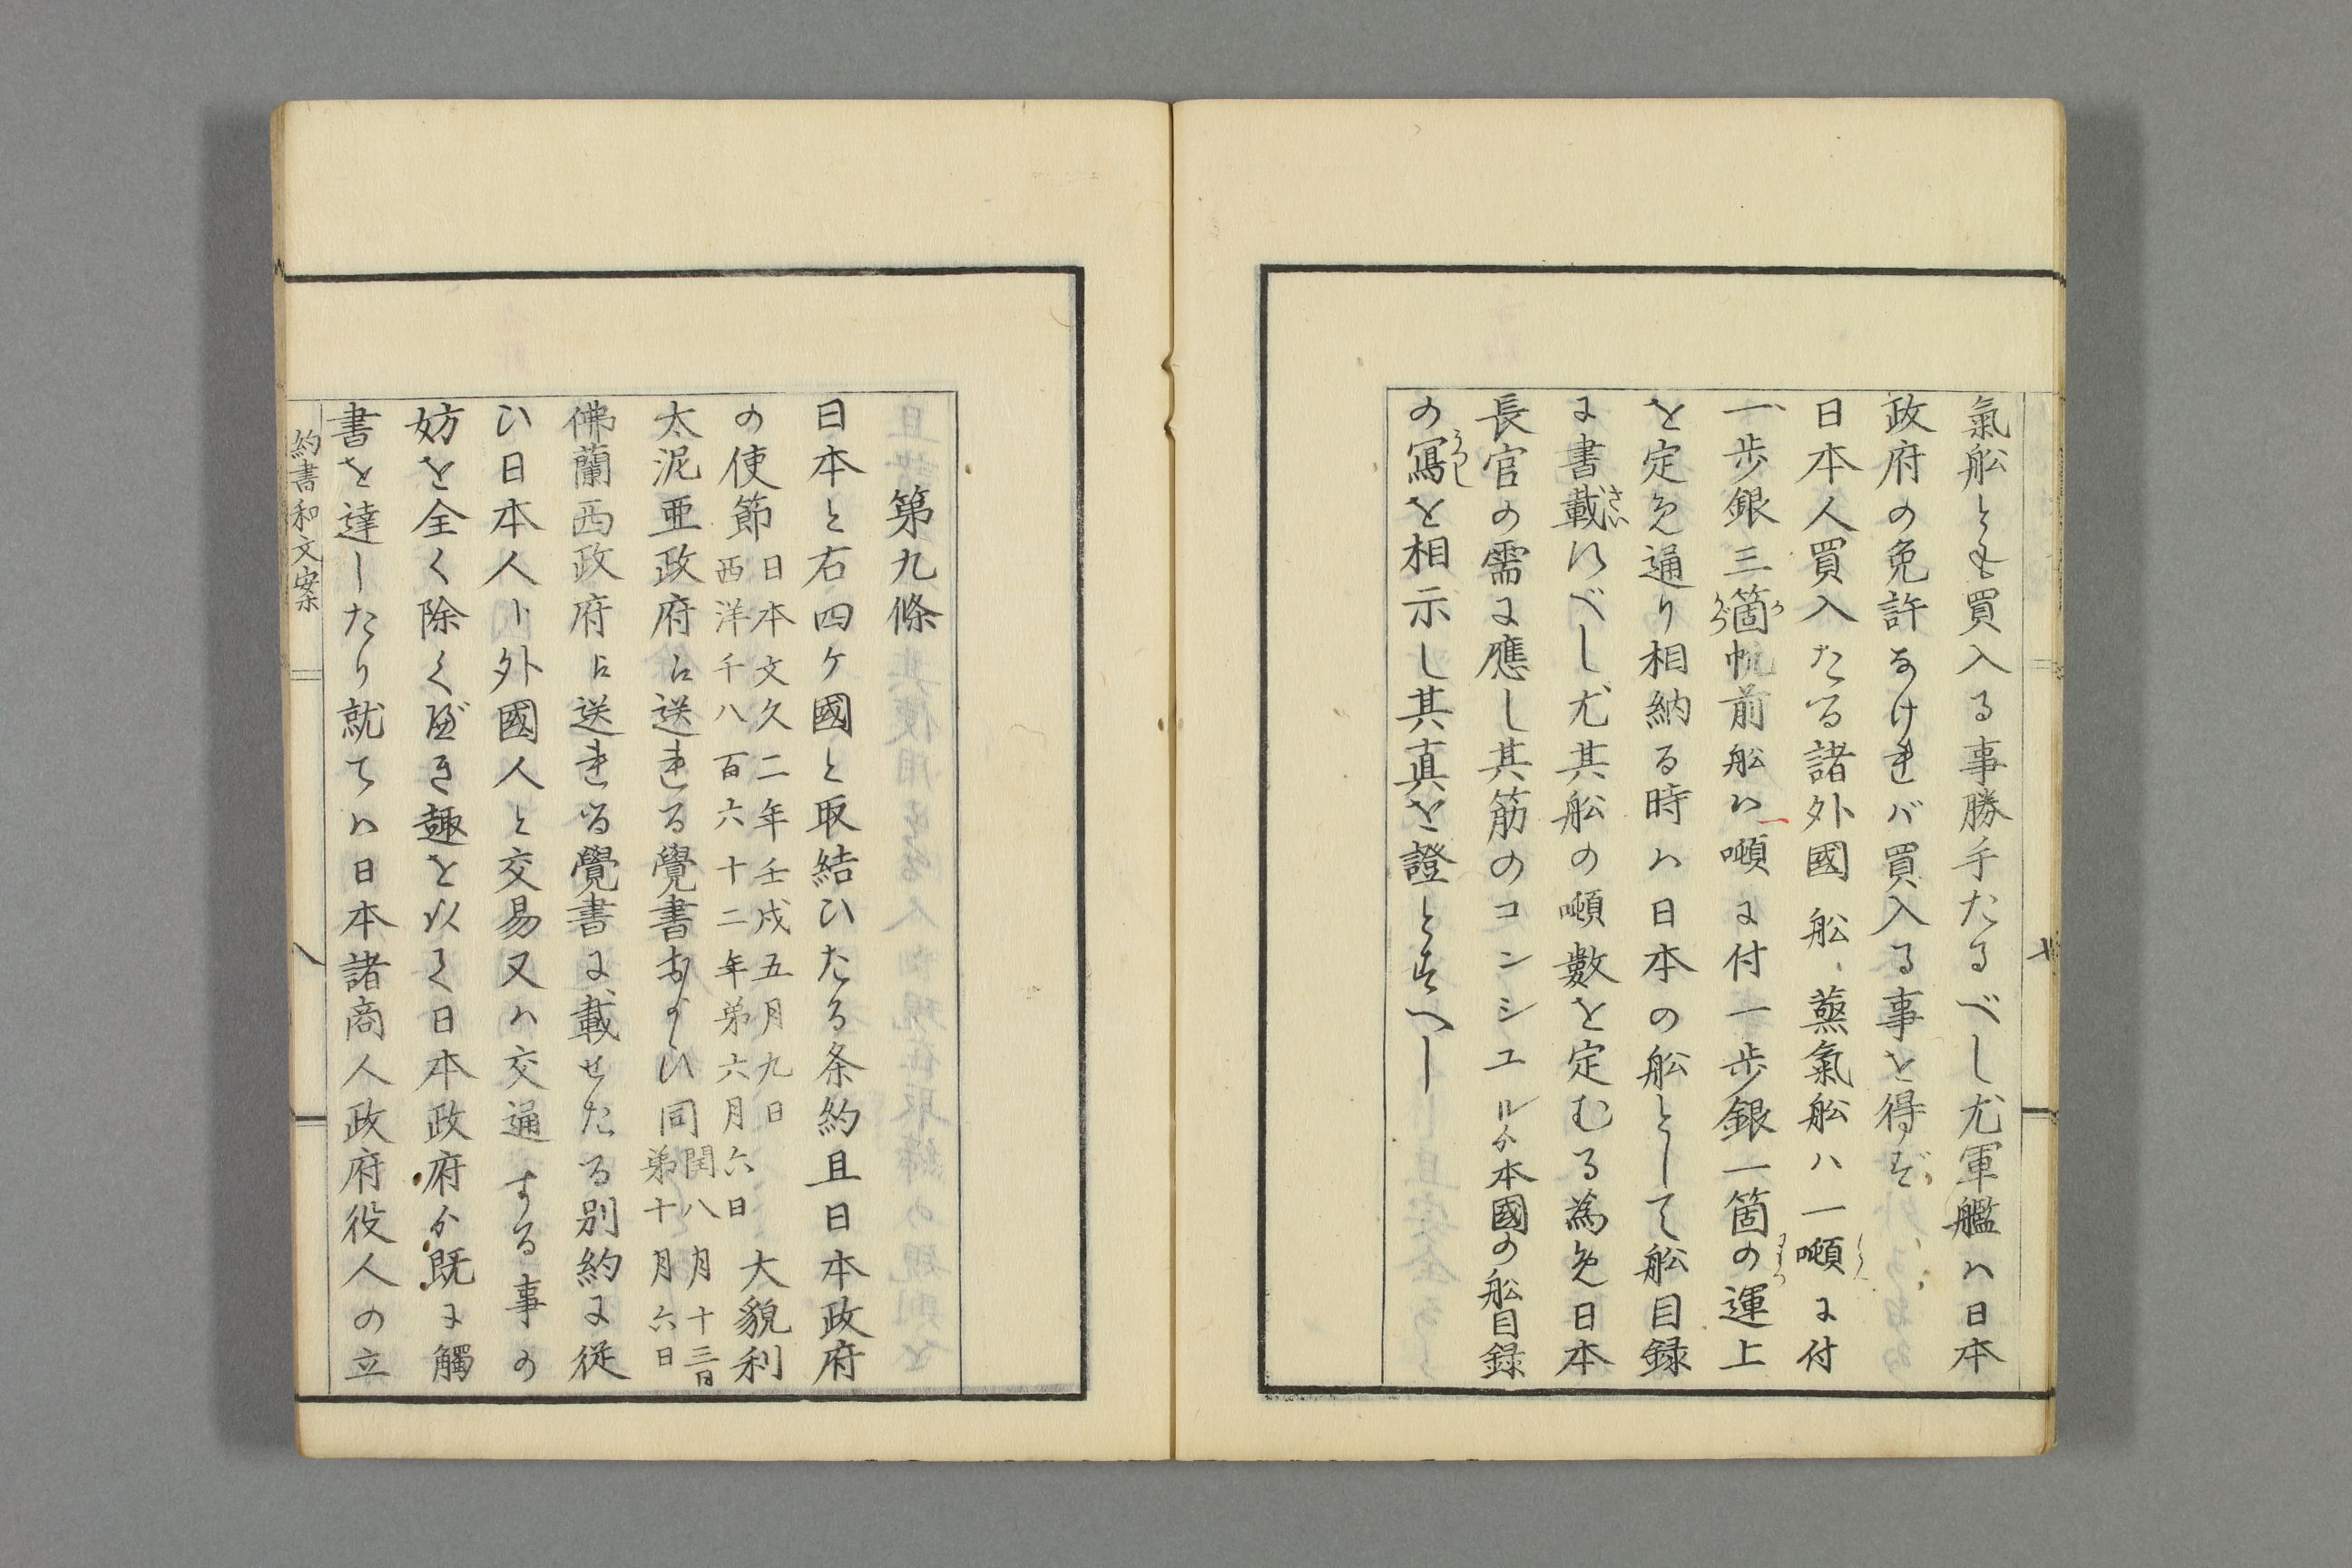 氣舩とも買入る事勝手たるべし尤軍艦ハ日本
政府の免許なけれバ買入る事を得ず
日本人買入たる諸外國舩、蒸氣舩ハ一噸に付
一歩銀三箇帆前舩ハ一噸に付一歩銀一箇の運上
を定め通り相納る時ハ日本の舩として舩目録
に書載すべし尤其舩の噸數を定むる為め日本
長官の需に應し其筋のコンシユルゟ本國の舩目録
の寫を相示し其真を證とすへし
七
第九條
日本と右四ケ國と取結ひたる条約且日本政府
の使節日本文久二年壬戌五月九日西洋千八百六十二年第六月六日大貌利
太泥亜政府ニ送れる覺書および同閏八月十三日第十月六日
佛蘭西政府ニ送れる覺書に載せたる別約に従
ひ日本人ト外國人と交易又ハ交通する事の
妨を全く除くべき趣を以て日本政府ゟ既に觸
書を達したり就てハ日本諸商人政府役人の立
約書和文案
八